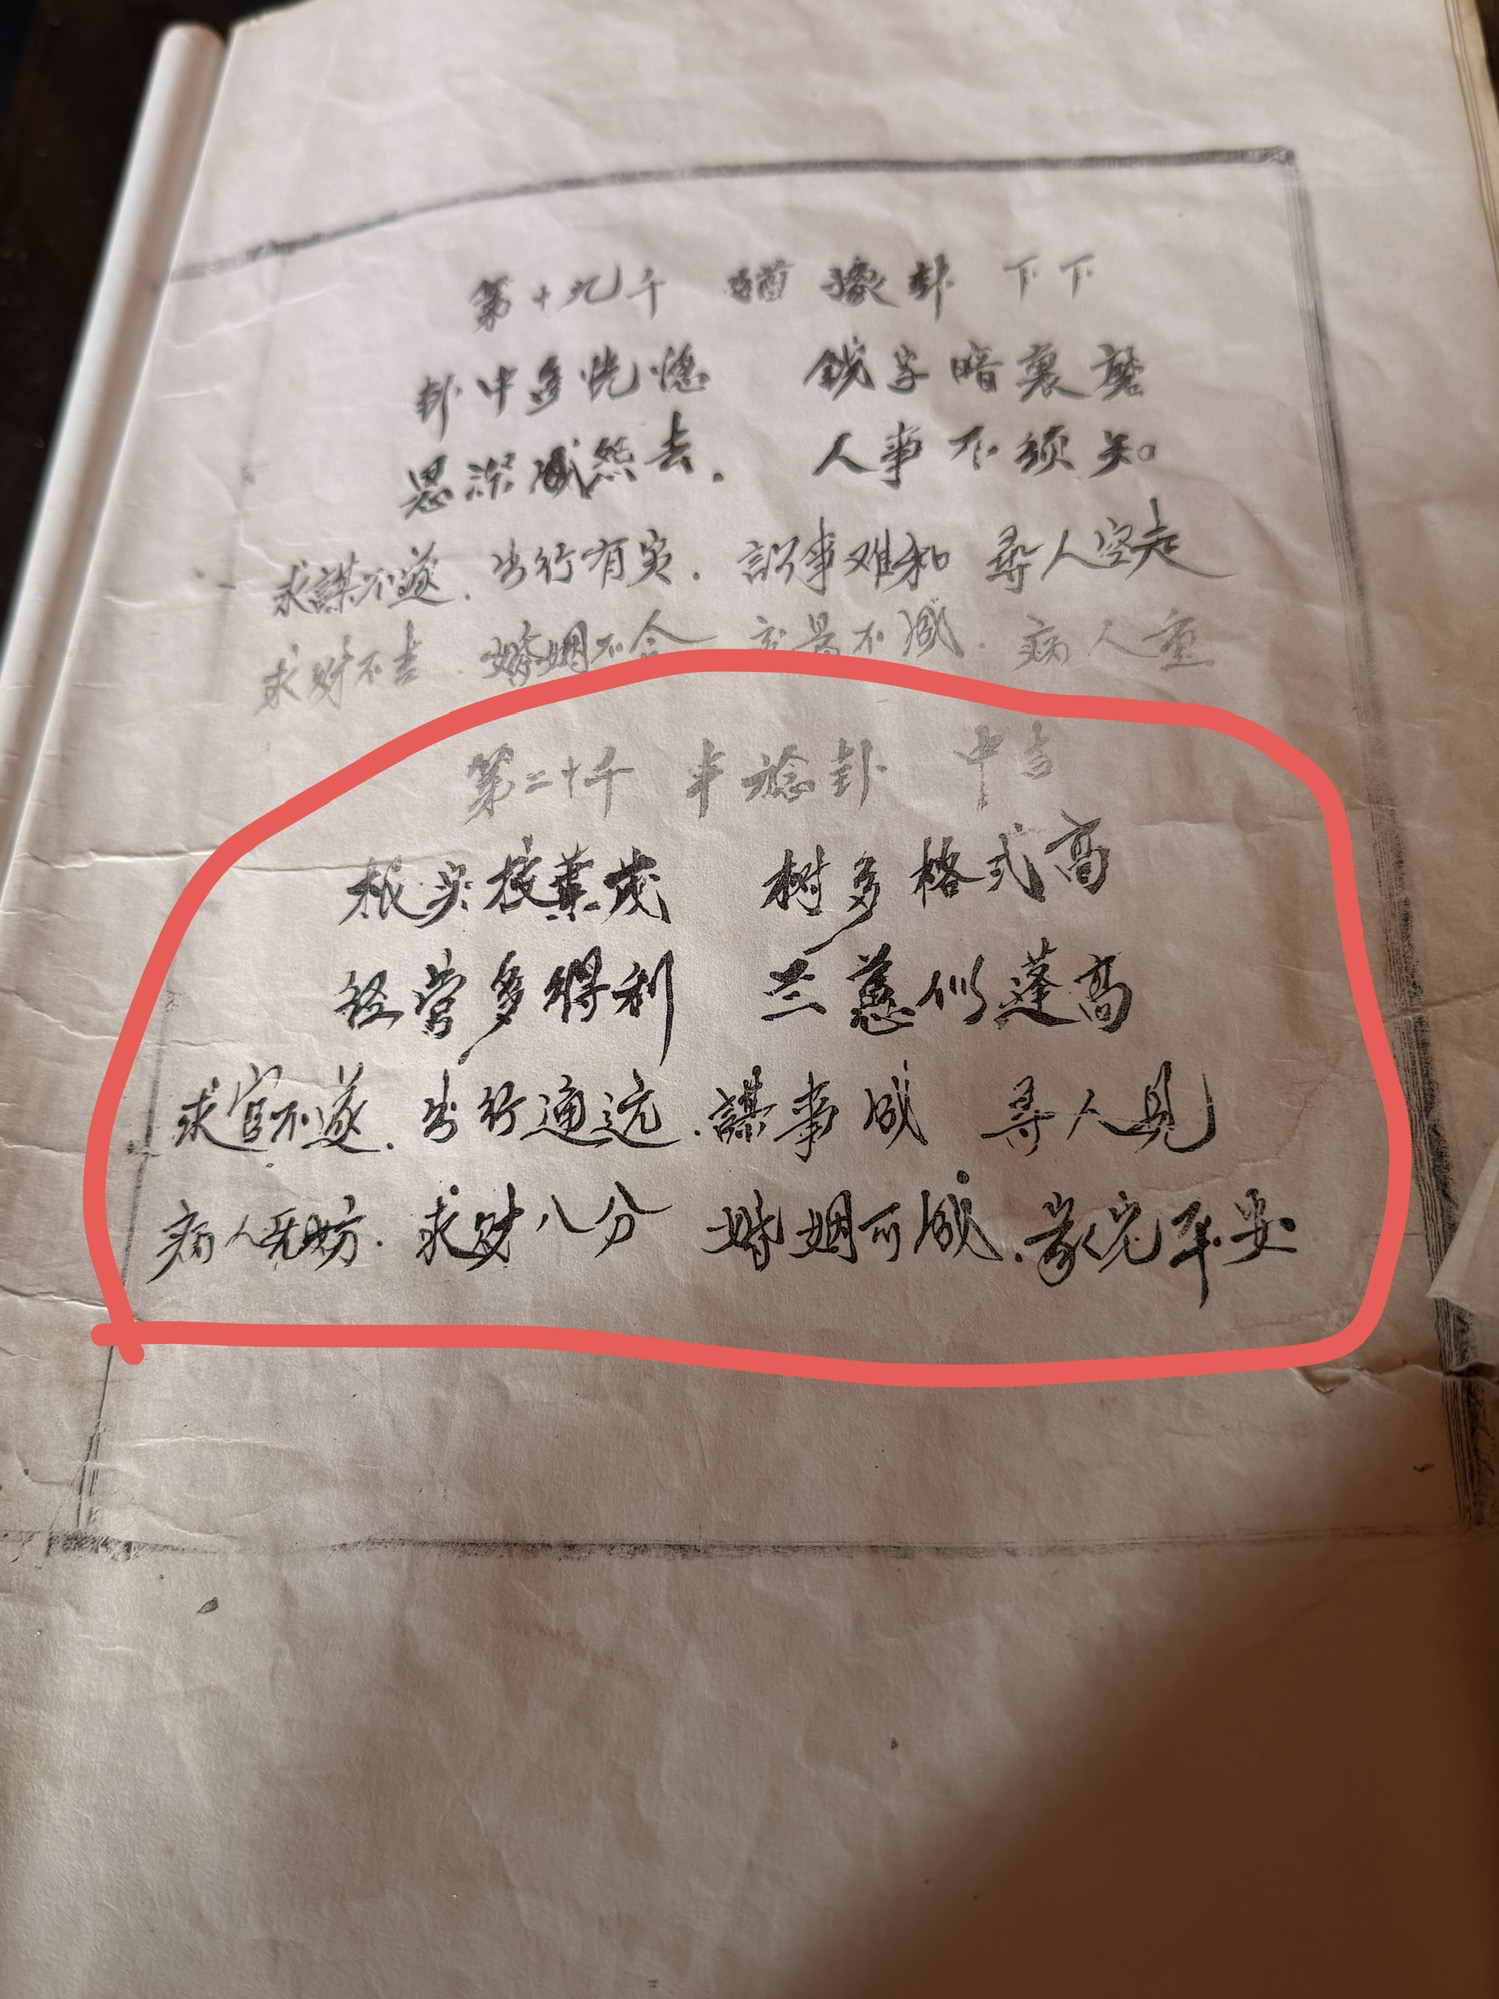 第十九千 猶豫卦 下下
卦中多恍惚 钱字暗裏
思深減然去. 人事不须知
求謀不遂. 出行有实. 訟事难和 尋人空走
求财不吉. 婚姻不合 不减. 病人重
第二十千 卦 中吉
根实枝葉茂 树多格式高
经营多得利 兰蕙似蓬高
求官不遂. 出行通远. 謀事成 寻人見
病人无妨. 求财八分 婚姻可成. 家宅平安